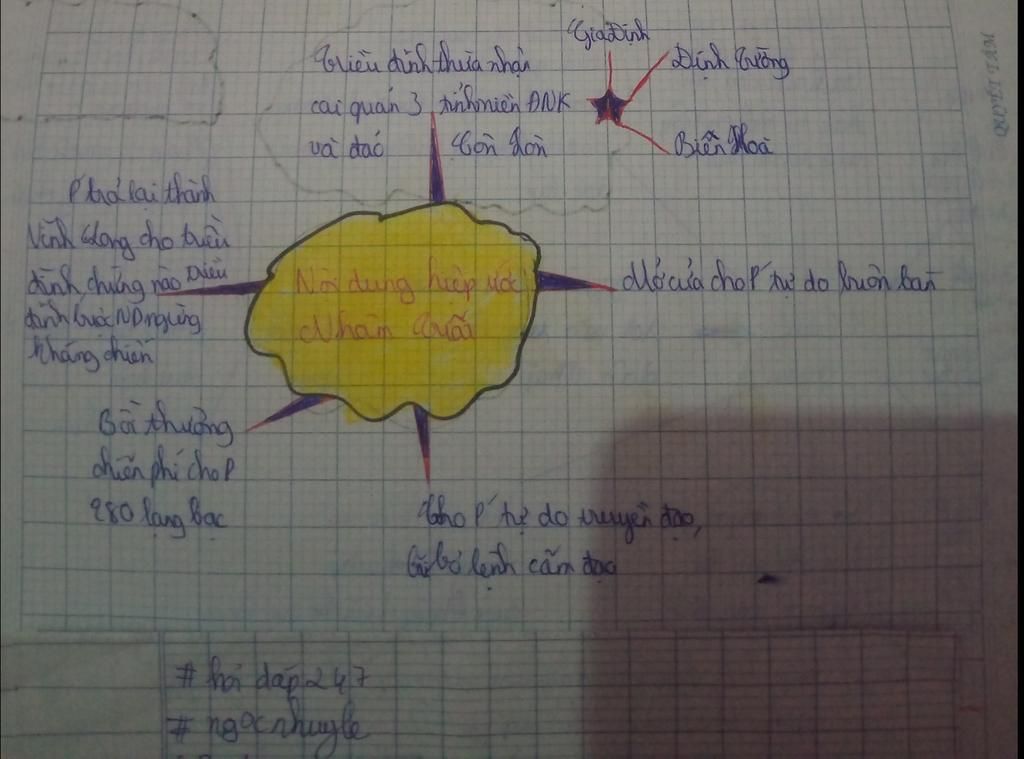 Triều đình thừa nhận
cai quản 3 tỉnh miền ĐNK
và đảo Côn Lôn
Gia Định
Định Tường
Biên Hoà
P' trả lại thành
Vĩnh Long cho triều
đình, chừng nào triều
đình buộc ND ngừng
kháng chiến
Nội dung hiệp ước
Nhâm Tuất
Mở cửa cho P' tự do buôn bán
Bồi thường
chiến phí cho P
280 lạng bạc
Cho P' tự do truyền đạo,
bãi bỏ lệnh cấm đạo
QUYẾT TÂM
# hỏi đáp 247
# ngocnhuyle